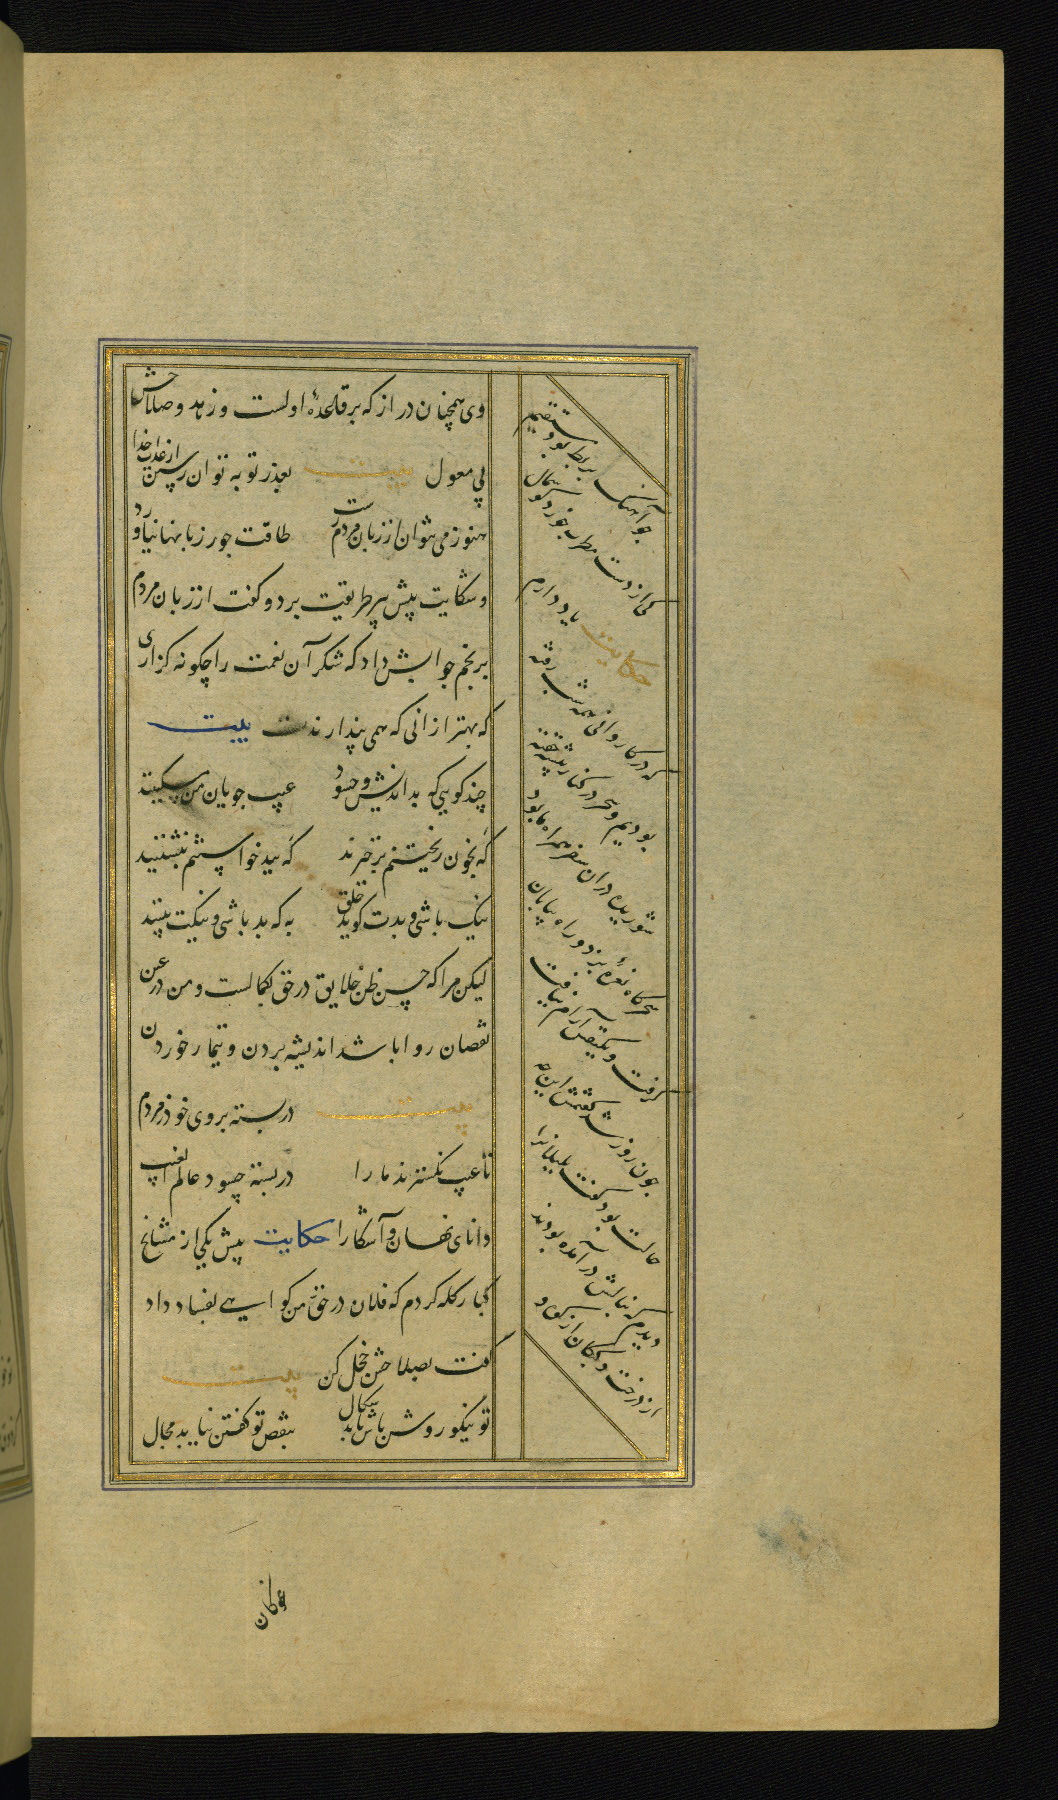 وی همچنان دراز که بر قاعدهٔ اولست و زهد و صلاحش
بی معول بیت بعذر توبه توان رستن از عذاب خدا
هنوز می نتوان از زبان مردم رست طاقت جور زبانها نیاورد
و شکایت پیش پیر طریقت برد و گفت از زبان مردم
برنجم جوابش داد که شکر آن نعمت را چگونه گزاری
که بهتر از انی که همی پندارندت بیت
چند گویی که بداندیش و حسود عیب جویان من مسکینند
گه بخون ریختنم برخیزند گه ببد خواستنم بنشینند
نیک باشی و بدت گوید خلق به که بد باشی و نیکت بینند
لیکن مرا که حسن ظن خلایق در حق بکمالست و من در عین
نقصان روا باشد اندیشه بردن و تیمار خوردن
بیت در بسته بروی خود ز مردم
تا عیب نگسترند ما را در بسته چه سود عالم الغیب
دانای نهان و آشکارا حکایت پیش یکی از مشایخ
کبار گله کردم که فلان در حق من گواهی بفساد داد
گفت بصلاحش خجل کن بیت
تو نیکو روش باش تا بد سگال بنقص تو گفتن نیابد مجال
چو آهنگ بربط بود مستقیم
کی از دست مطرب خورد گوشمال
حکایت یاد دارم
که در کاروانی همه شب رفته
بودیم و سحر در کنار بیشه خفته
شوریده در ان سفر همراه ما بود
سحرگاه نعرهٔ بزد و راه بیابان
گرفت و یکنفس آرام نیافت
چون روز شد گفتمش این چه
حالت بود گفت بلبلانرا
دیدم که بنالش در آمده بودند
از درخت و کبکان از کوه و
غوکان